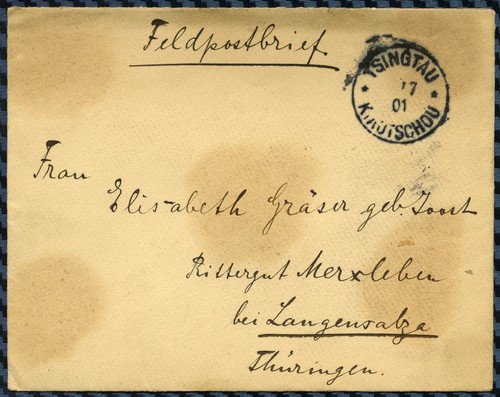 Feldpostbrief
TSINGTAU
17
01
KIAUTSCHOU
Frau
Elisabeth Gräser geb. Joost
Rittergut Merxleben
bei Langensalza
Thüringen.